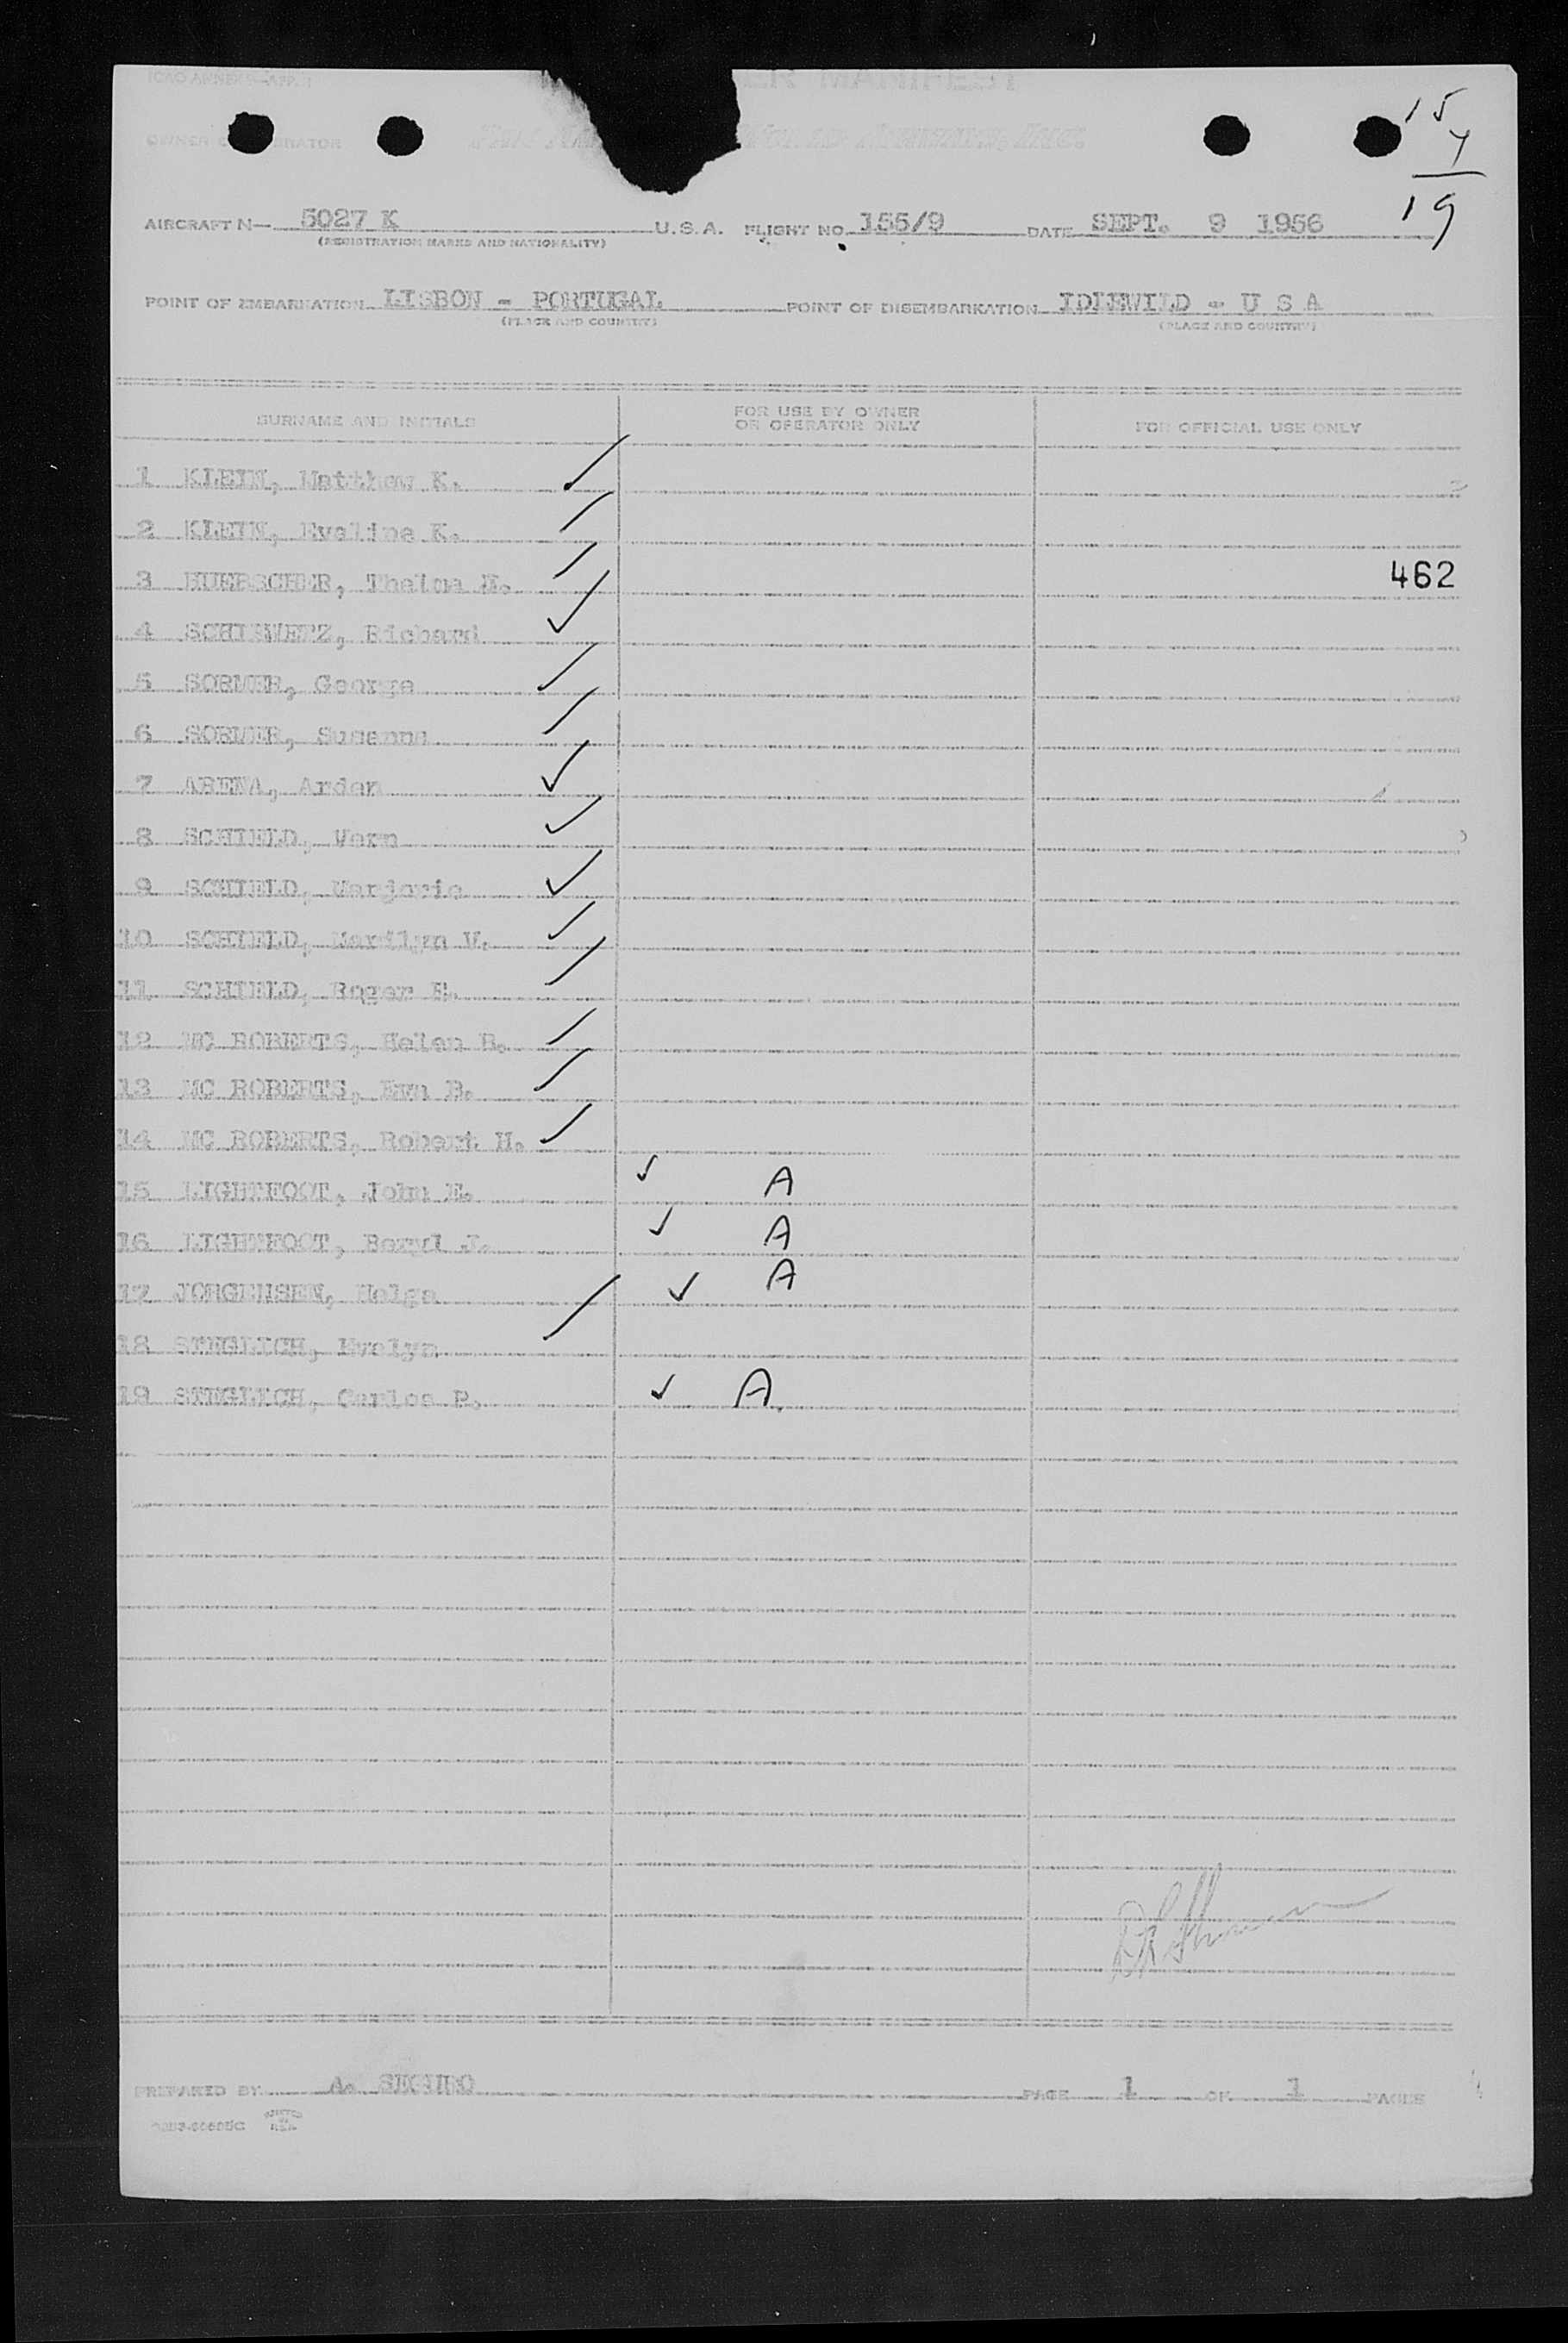 ICAO ANNEX 9-APP. 1
ER MANIFEST
OWNER O ERATOR
15
4
19
AIRCRAFT N— 5027 K U.S.A. FLIGHT NO. 155/9 DATE SEPT. 9 1956
(REGISTRATION MARKS AND NATIONALITY)
POINT OF EMBARKATION LISBON - PORTUGAL POINT OF DISEMBARKATION IDLEWILD - U S A
(PLACE AND COUNTRY) (PLACE AND COUNTRY)
SURNAME AND INITIALS FOR USE BY OWNER OR OPERATOR ONLY FOR OFFICIAL USE ONLY
1 KLEIN, Matthew K. ✓
2 KLEIN, Eveline K. ✓
3 HUEBSCHER, Thelma ✓ 462
4 Richard ✓
5 George ✓
6 Susanna ✓
7 ARENA, Arden ✓
8 SCHIELD, Vern ✓
9 SCHIELD, Marjorie ✓
10 SCHIELD, Marilyn V. ✓
11 SCHIELD, Roger ✓
12 MC ROBERTS, Helen B. ✓
13 MC ROBERTS, Eva B. ✓
14 MC ROBERTS, Robert H. ✓
15 LIGHTFOOT, John E. ✓ A
16 LIGHTFOOT, Beryl J. ✓ A
17 JORGENSEN, Helga ✓ A
18 STEGLICH, Evelyn ✓
19 STEGLICH, Carlos P. ✓ A
PREPARED BY A. SEGURO PAGE 1 OF 1 PAGES
PRINTED IN U.S.A.